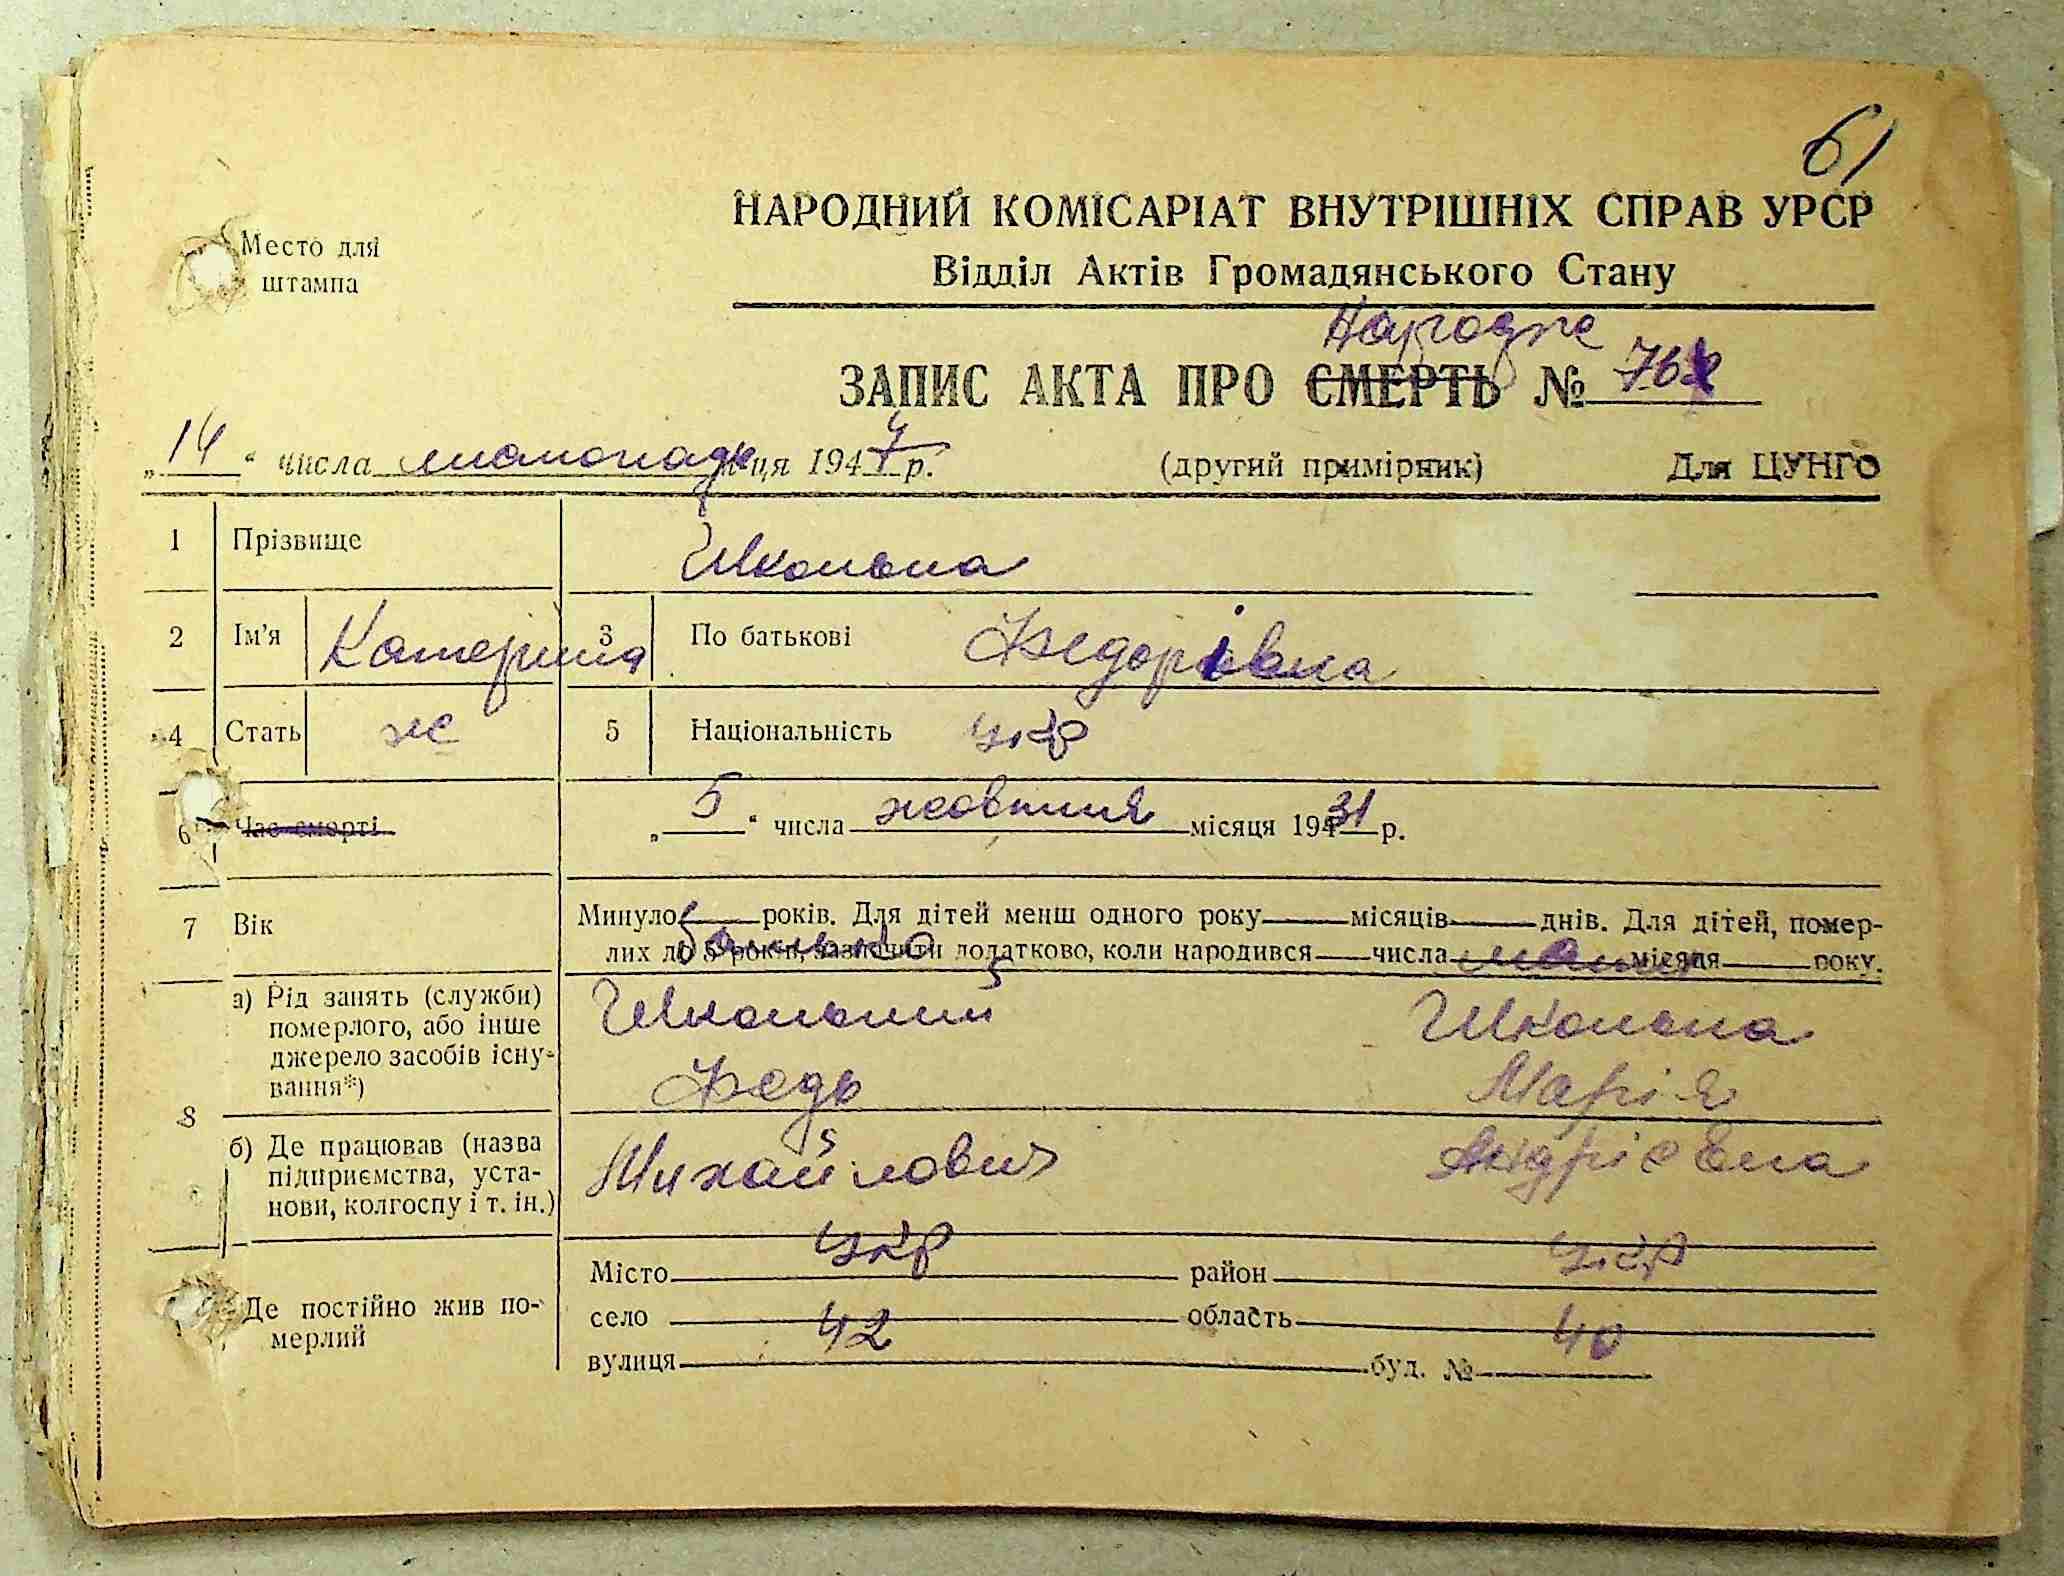 61
Место для
штампа
НАРОДНИЙ КОМІСАРІАТ ВНУТРІШНІХ СПРАВ УРСР
Відділ Актів Громадянського Стану
Народже
ЗАПИС АКТА ПРО СМЕРТЬ №
„14“ числа листопада ця 1947 р. (другий примірник) Для ЦУНГО
1 Прізвище Школьна
2 Ім'я Катеріна 3 По батькові Федорівна
4 Стать ж 5 Національність укр
6 Час смерті „5“ числа жовтня місяця 1931 р.
7 Вік Минуло років. Для дітей менш одного року місяців днів. Для дітей, помер-
лих до 5 років, зазначити додатково, коли народився числа місяця року.
батько мати
8 а) Рід занять (служби)
померлого, або інше
джерело засобів існу-
вання*)
Школьний Школьна
Федь Марія
б) Де працював (назва
підприємства, уста-
нови, колгоспу і т. ін.)
Михайлович Андріевна
укр укр
Де постійно жив по-
мерлий
Місто район
село область
42 40
вулиця буд. №